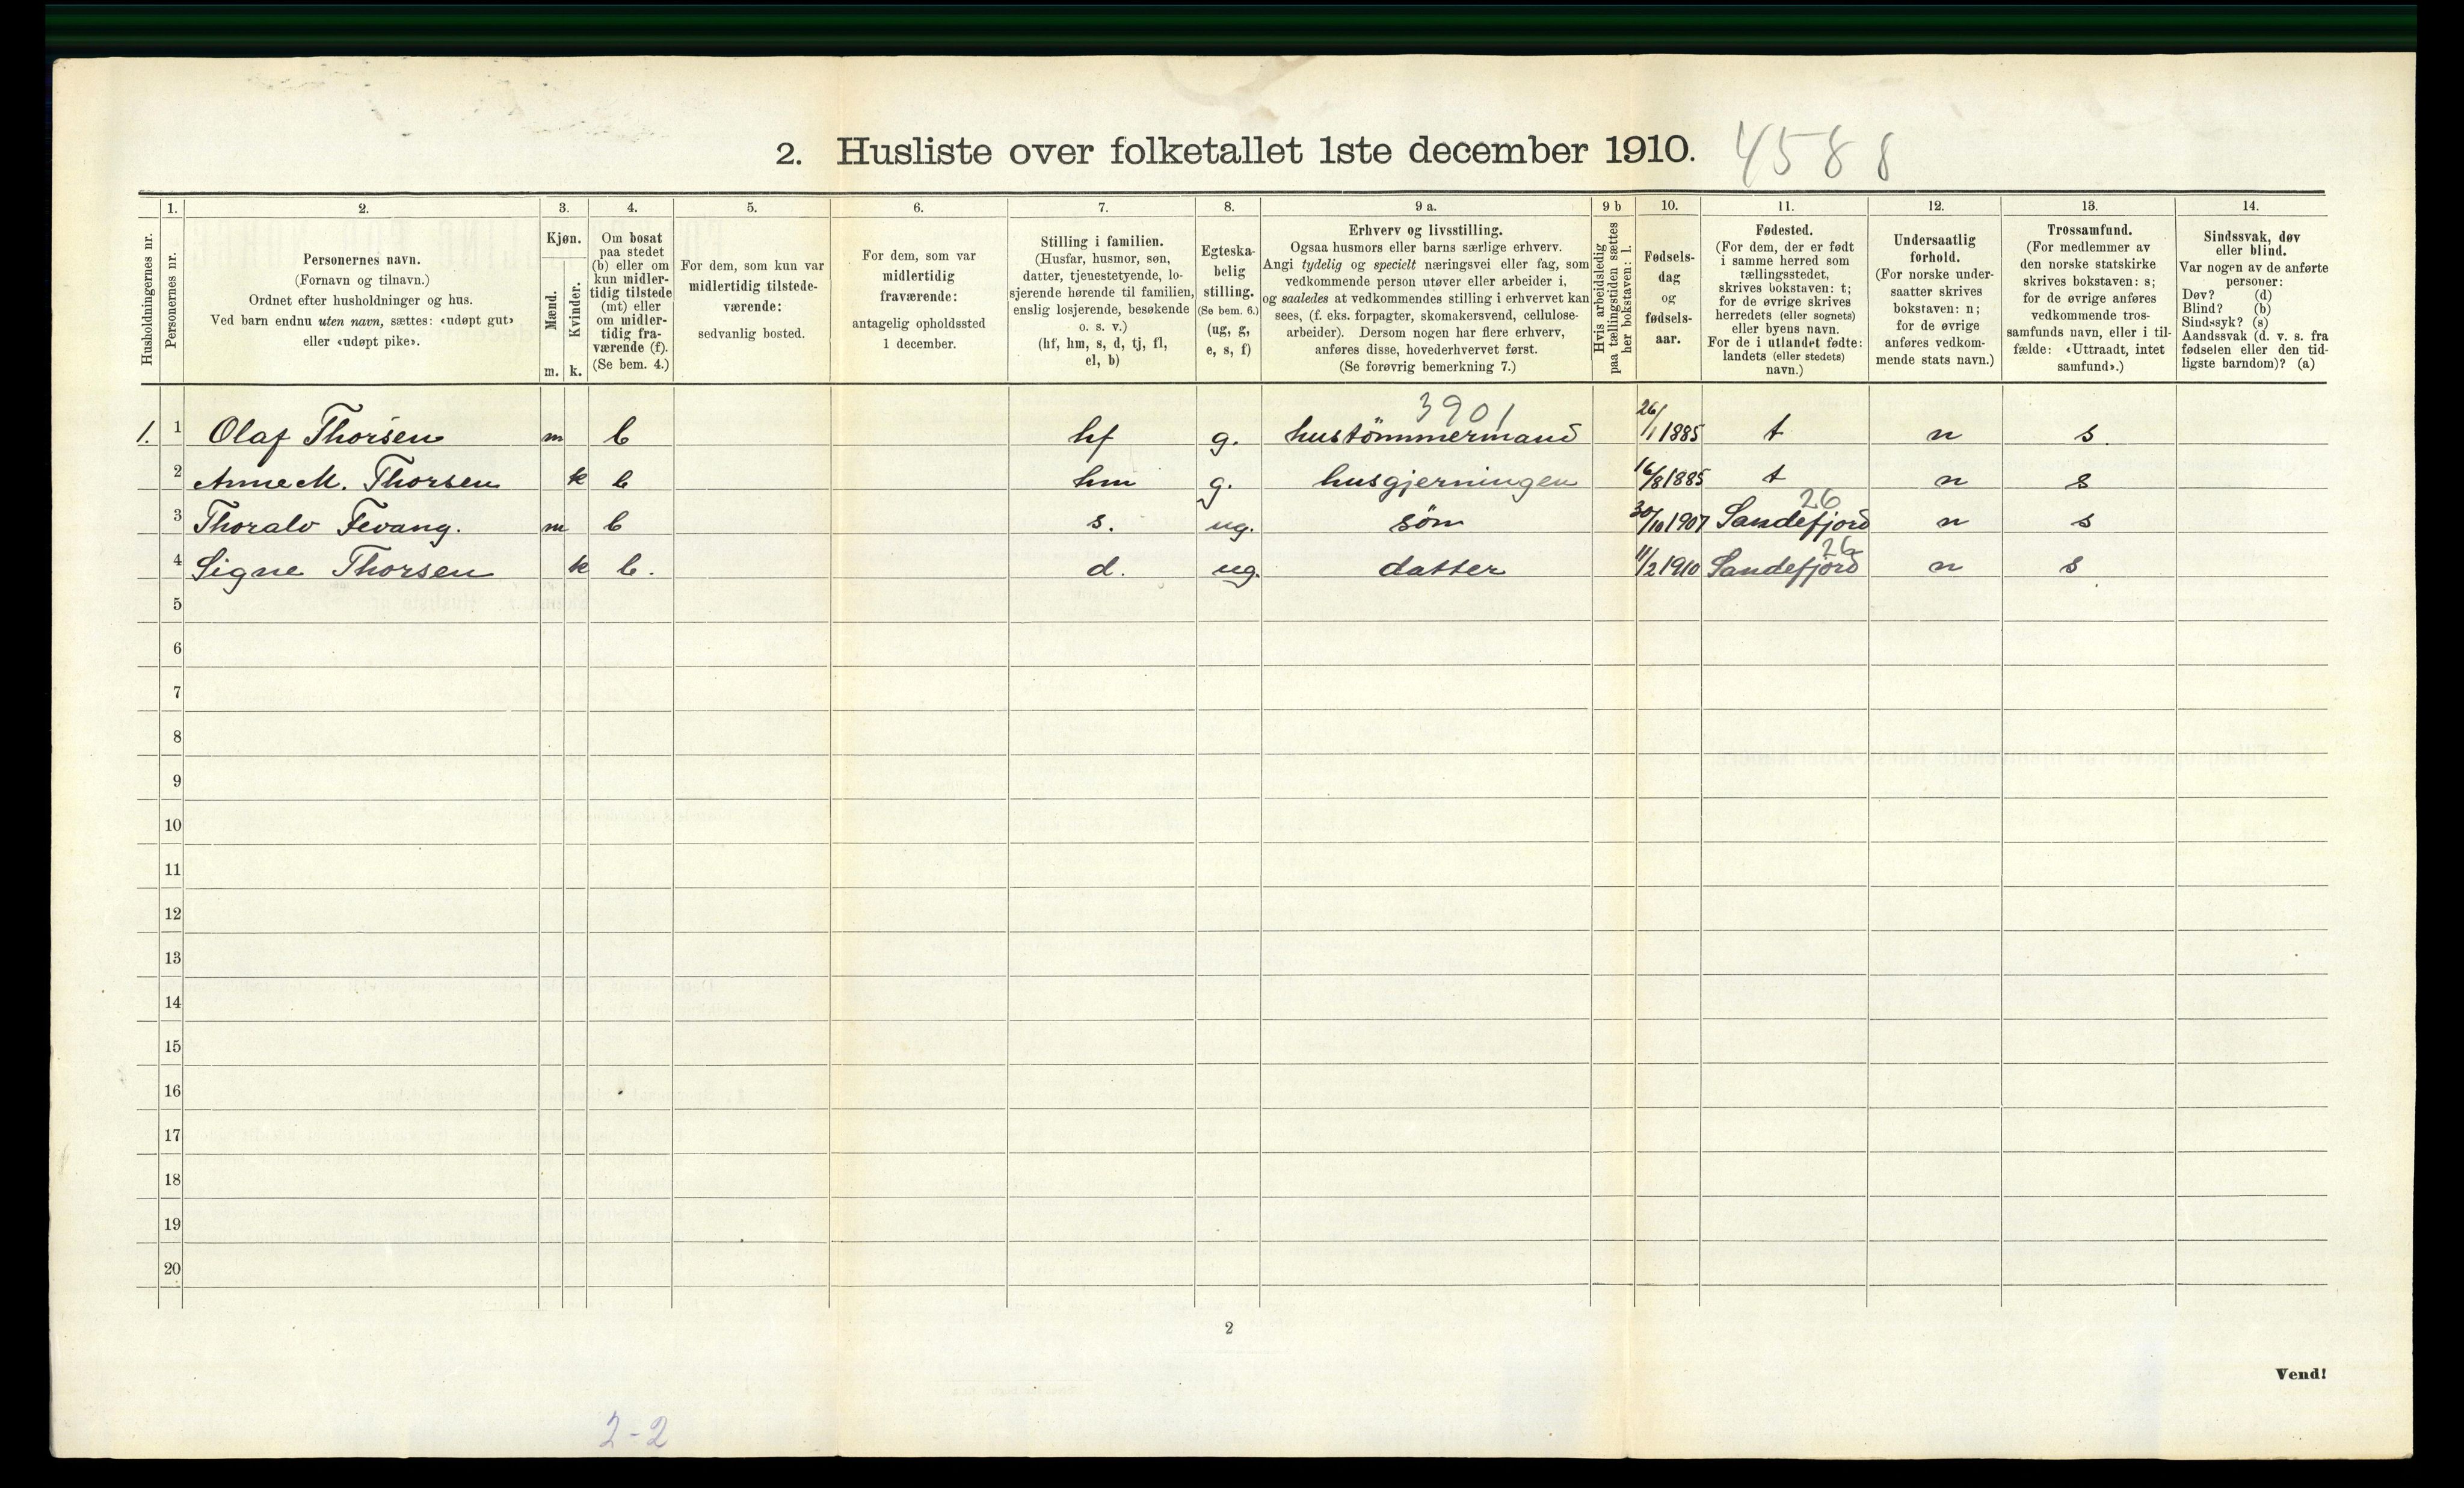 2. Husliste over folketallet 1ste december 1910. 4588
Husholdningernes nr.
1.
Personernes nr.
2.
Personernes navn.
(Fornavn og tilnavn.)
Ordnet efter husholdninger og hus.
Ved barn endnu uten navn, sættes: «udøpt gut»
eller «udøpt pike».
3.
Kjøn.
Mænd.
Kvinder.
m. k.
4.
Om bosat
paa stedet
(b) eller om
kun midler-
tidig tilstede
(mt) eller
om midler-
tidig fra-
værende (f).
(Se bem. 4.)
5.
For dem, som kun var
midlertidig tilstede-
værende:
sedvanlig bosted.
6.
For dem, som var
midlertidig
fraværende:
antagelig opholdssted
1 december.
7.
Stilling i familien.
(Husfar, husmor, søn,
datter, tjenestetyende, lo-
sjerende hørende til familien,
enslig losjerende, besøkende
o. s. v.)
(hf, hm, s, d, tj, fl,
el, b)
8.
Egteska-
belig
stilling.
(Se bem. 6.)
(ug, g,
e, s, f)
9 a.
Erhverv og livsstilling.
Ogsaa husmors eller barns særlige erhverv.
Angi tydelig og specielt næringsvei eller fag, som
vedkommende person utøver eller arbeider i,
og saaledes at vedkommendes stilling i erhvervet kan
sees, (f. eks. forpagter, skomakersvend, cellulose-
arbeider). Dersom nogen har flere erhverv,
anføres disse, hovederhvervet først.
(Se forøvrig bemerkning 7.)
9 b
Hvis arbeidsledig
paa tællingstiden sættes
her bokstaven: l.
10.
Fødsels-
dag
og
fødsels-
aar.
11.
Fødested.
(For dem, der er født
i samme herred som
tællingsstedet,
skrives bokstaven: t;
for de øvrige skrives
herredets (eller sognets)
eller byens navn.
For de i utlandet fødte:
landets (eller stedets)
navn.)
12.
Undersaatlig
forhold.
(For norske under-
saatter skrives
bokstaven: n;
for de øvrige
anføres vedkom-
mende stats navn.)
13.
Trossamfund.
(For medlemmer av
den norske statskirke
skrives bokstaven: s;
for de øvrige anføres
vedkommende tros-
samfunds navn, eller i til-
fælde: «Uttraadt, intet
samfund».)
14.
Sindssvak, døv
eller blind.
Var nogen av de anførte
personer:
Døv? (d)
Blind? (b)
Sindssyk? (s)
Aandssvak (d. v. s. fra
fødselen eller den tid-
ligste barndom)? (a)
3901
1. 1 Olaf Thorsen m b hf g. hustömmermand 26/1 1885 t n s.
2 Anne M. Thorsen k b hm g. husgjerningen 16/8 1885 t n s
26
3 Thoralv Fevang. m b s. ug. söm 30/10 1907 Sandefjord n s
26
4 Signe Thorsen k b. d. ug. datter 11/2 1910 Sandefjord n s
5
6
7
8
9
10
11
12
13
14
15
16
17
18
19
20
2
Vend!
2-2